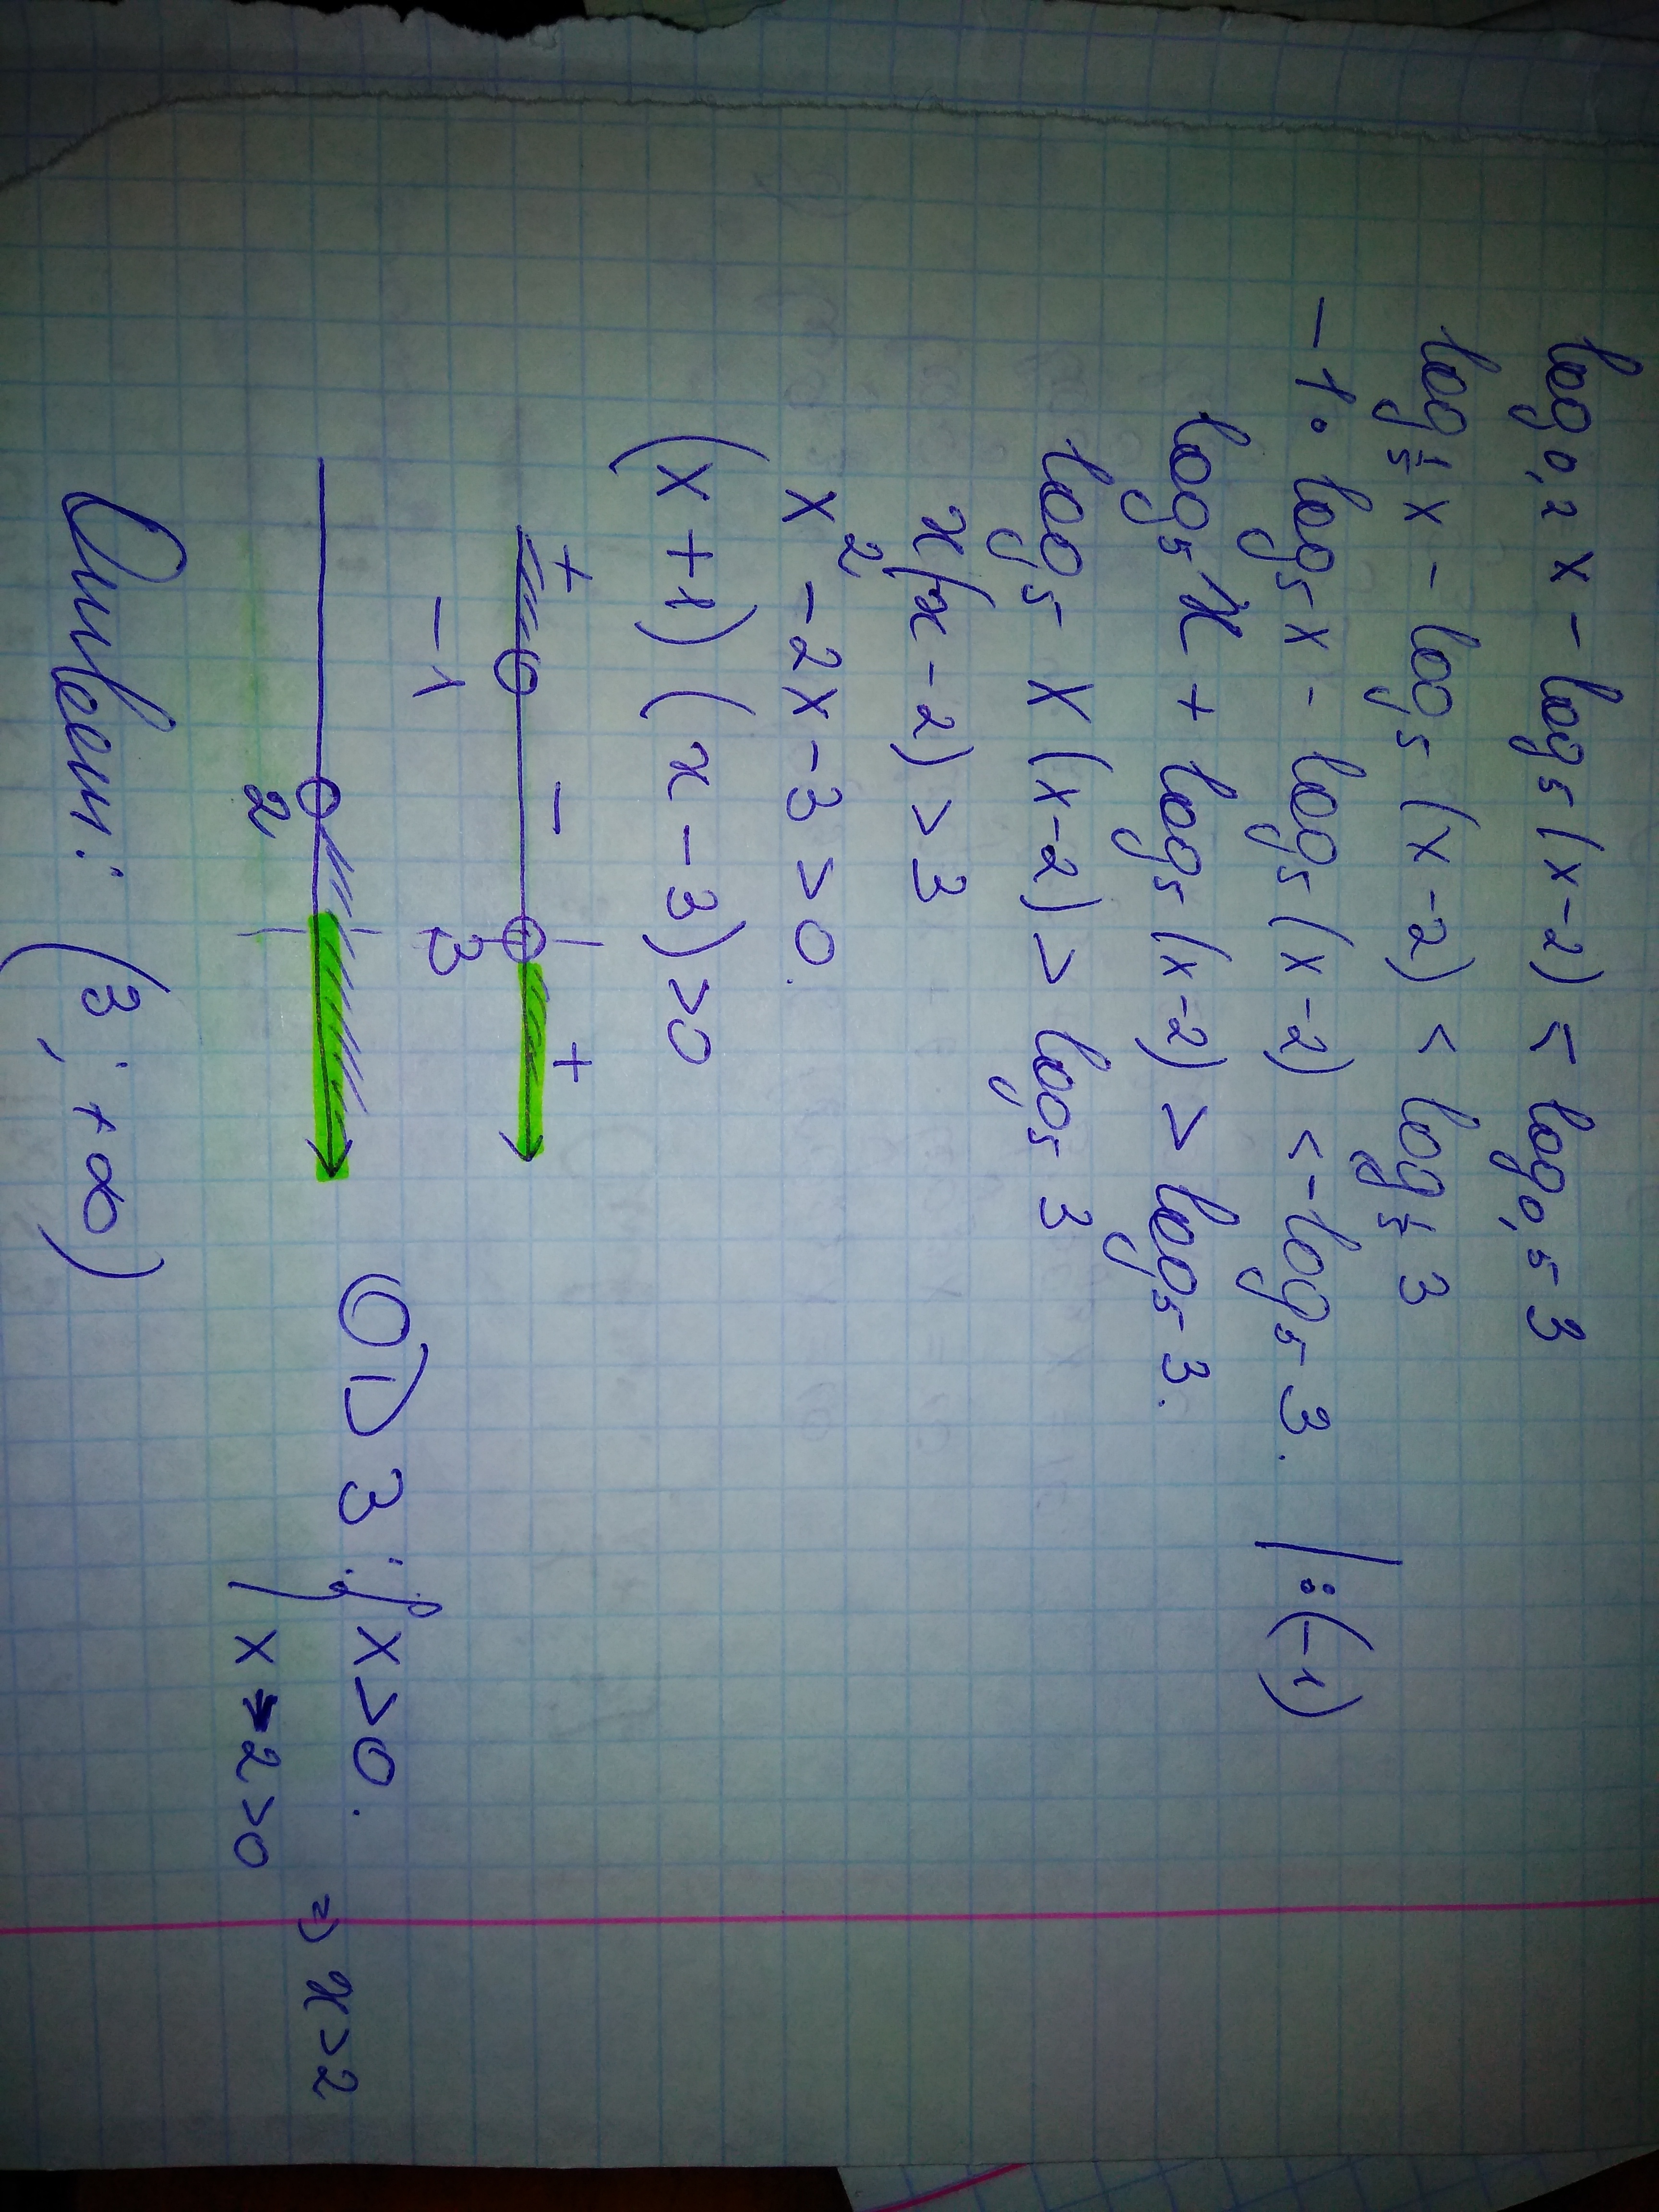 log₀,₂ x - log₅ (x-2) < log₀,₅ 3
log_⅕ x - log₅ (x-2) < log_⅕ 3
-1 · log₅ x - log₅ (x-2) < -log₅ 3. | : (-1)
log₅ x + log₅ (x-2) > log₅ 3.
log₅ x (x-2) > log₅ 3
x (x-2) > 3
x² - 2x - 3 > 0.
(x+1) (x-3) > 0
+ - +
-1 3
ОДЗ: { x > 0.
x - 2 > 0
⇒ x > 2
2
Ответ: (3; +∞)